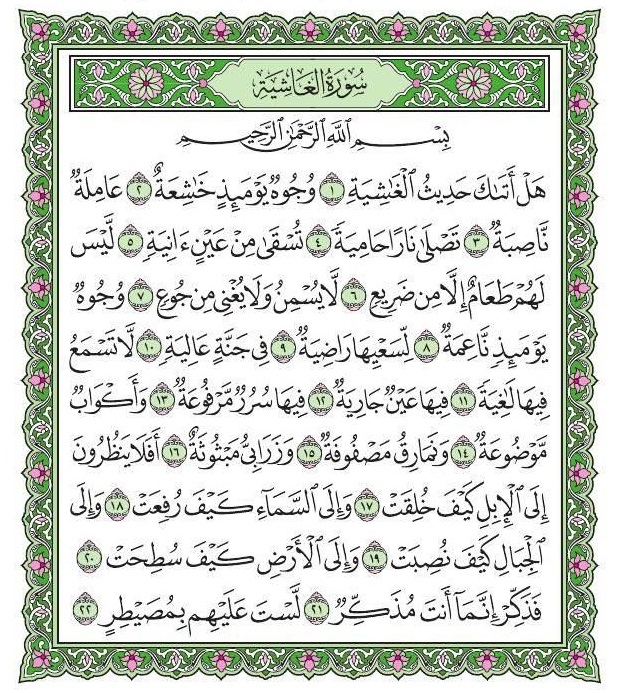 سُورَةُ الْغَاشِيَةِ
بِسْمِ اللَّهِ الرَّحْمَٰنِ الرَّحِيمِ
هَلْ أَتَىٰكَ حَدِيثُ الْغَٰشِيَةِ ١ وُجُوهٌ يَوْمَئِذٍ خَٰشِعَةٌ ٢ عَامِلَةٌ
نَّاصِبَةٌ ٣ تَصْلَىٰ نَارًا حَامِيَةً ٤ تُسْقَىٰ مِنْ عَيْنٍ ءَانِيَةٍ ٥ لَّيْسَ
لَهُمْ طَعَامٌ إِلَّا مِن ضَرِيعٍ ٦ لَّا يُسْمِنُ وَلَا يُغْنِي مِن جُوعٍ ٧ وُجُوهٌ
يَوْمَئِذٍ نَّاعِمَةٌ ٨ لِّسَعْيِهَا رَاضِيَةٌ ٩ فِي جَنَّةٍ عَالِيَةٍ ١٠ لَّا تَسْمَعُ
فِيهَا لَٰغِيَةً ١١ فِيهَا عَيْنٌ جَارِيَةٌ ١٢ فِيهَا سُرُرٌ مَّرْفُوعَةٌ ١٣ وَأَكْوَابٌ
مَّوْضُوعَةٌ ١٤ وَنَمَارِقُ مَصْفُوفَةٌ ١٥ وَزَرَابِيُّ مَبْثُوثَةٌ ١٦ أَفَلَا يَنظُرُونَ
إِلَى الْإِبِلِ كَيْفَ خُلِقَتْ ١٧ وَإِلَى السَّمَآءِ كَيْفَ رُفِعَتْ ١٨ وَإِلَى
الْجِبَالِ كَيْفَ نُصِبَتْ ١٩ وَإِلَى الْأَرْضِ كَيْفَ سُطِحَتْ ٢٠
فَذَكِّرْ إِنَّمَآ أَنتَ مُذَكِّرٌ ٢١ لَّسْتَ عَلَيْهِم بِمُصَيْطِرٍ ٢٢